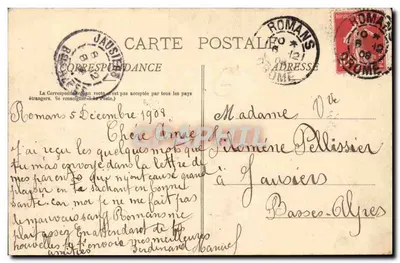 CARTE POSTALE
CORRESPONDANCE
ADRESSE
La Correspondance au recto n'est pas acceptée par tous les pays
étrangers. Se renseigner à la Poste.)
ROMANS
DROME
ROMANS
DROME
JAUSIERS
Romans 5 Décembre 1908
Chère Amie
J'ai reçu les quelques mots que
tu m'as envoyé dans la lettre de
mes parents que m'ont causé grand
plaisir en te sachant en bonne
santé car moi je ne me fait pas
de mauvais sang Romans me
plait assez En attendant de tes
nouvelles je t'envoie mes meilleures
amitiés Ferdinand Manuel
Madame Vve
Philomène Pellissier
à Jausiers
Basses-Alpes